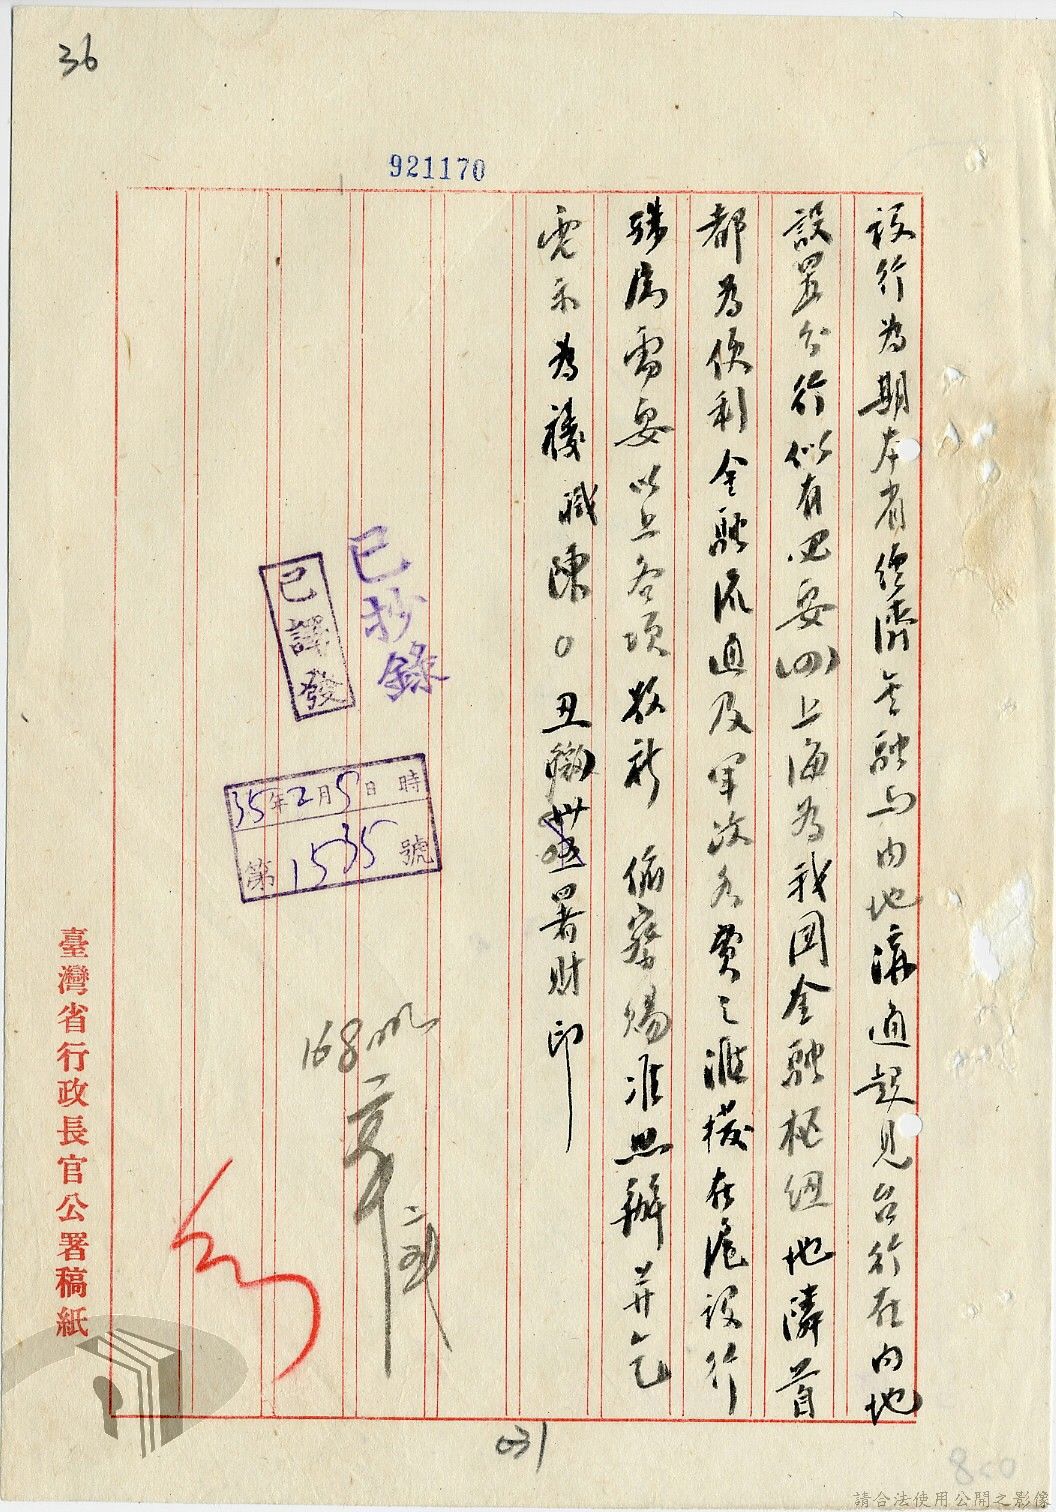 36
921170
設行為期本省經濟金融与內地溝通起見台行在內地
設置分行似有必要(四)上海為我國金融樞纽地隣首
都為便利金融流通及軍政各費之滙撥在滬設行
殊屬需要以上各項敬祈 俯察賜准照辦并乞
電示為禱職陳○丑 署財印
已抄錄
已譯發
35年2月5日 時
第1535號
168
臺灣省行政長官公署稿紙
031
請合法使用公開之影像